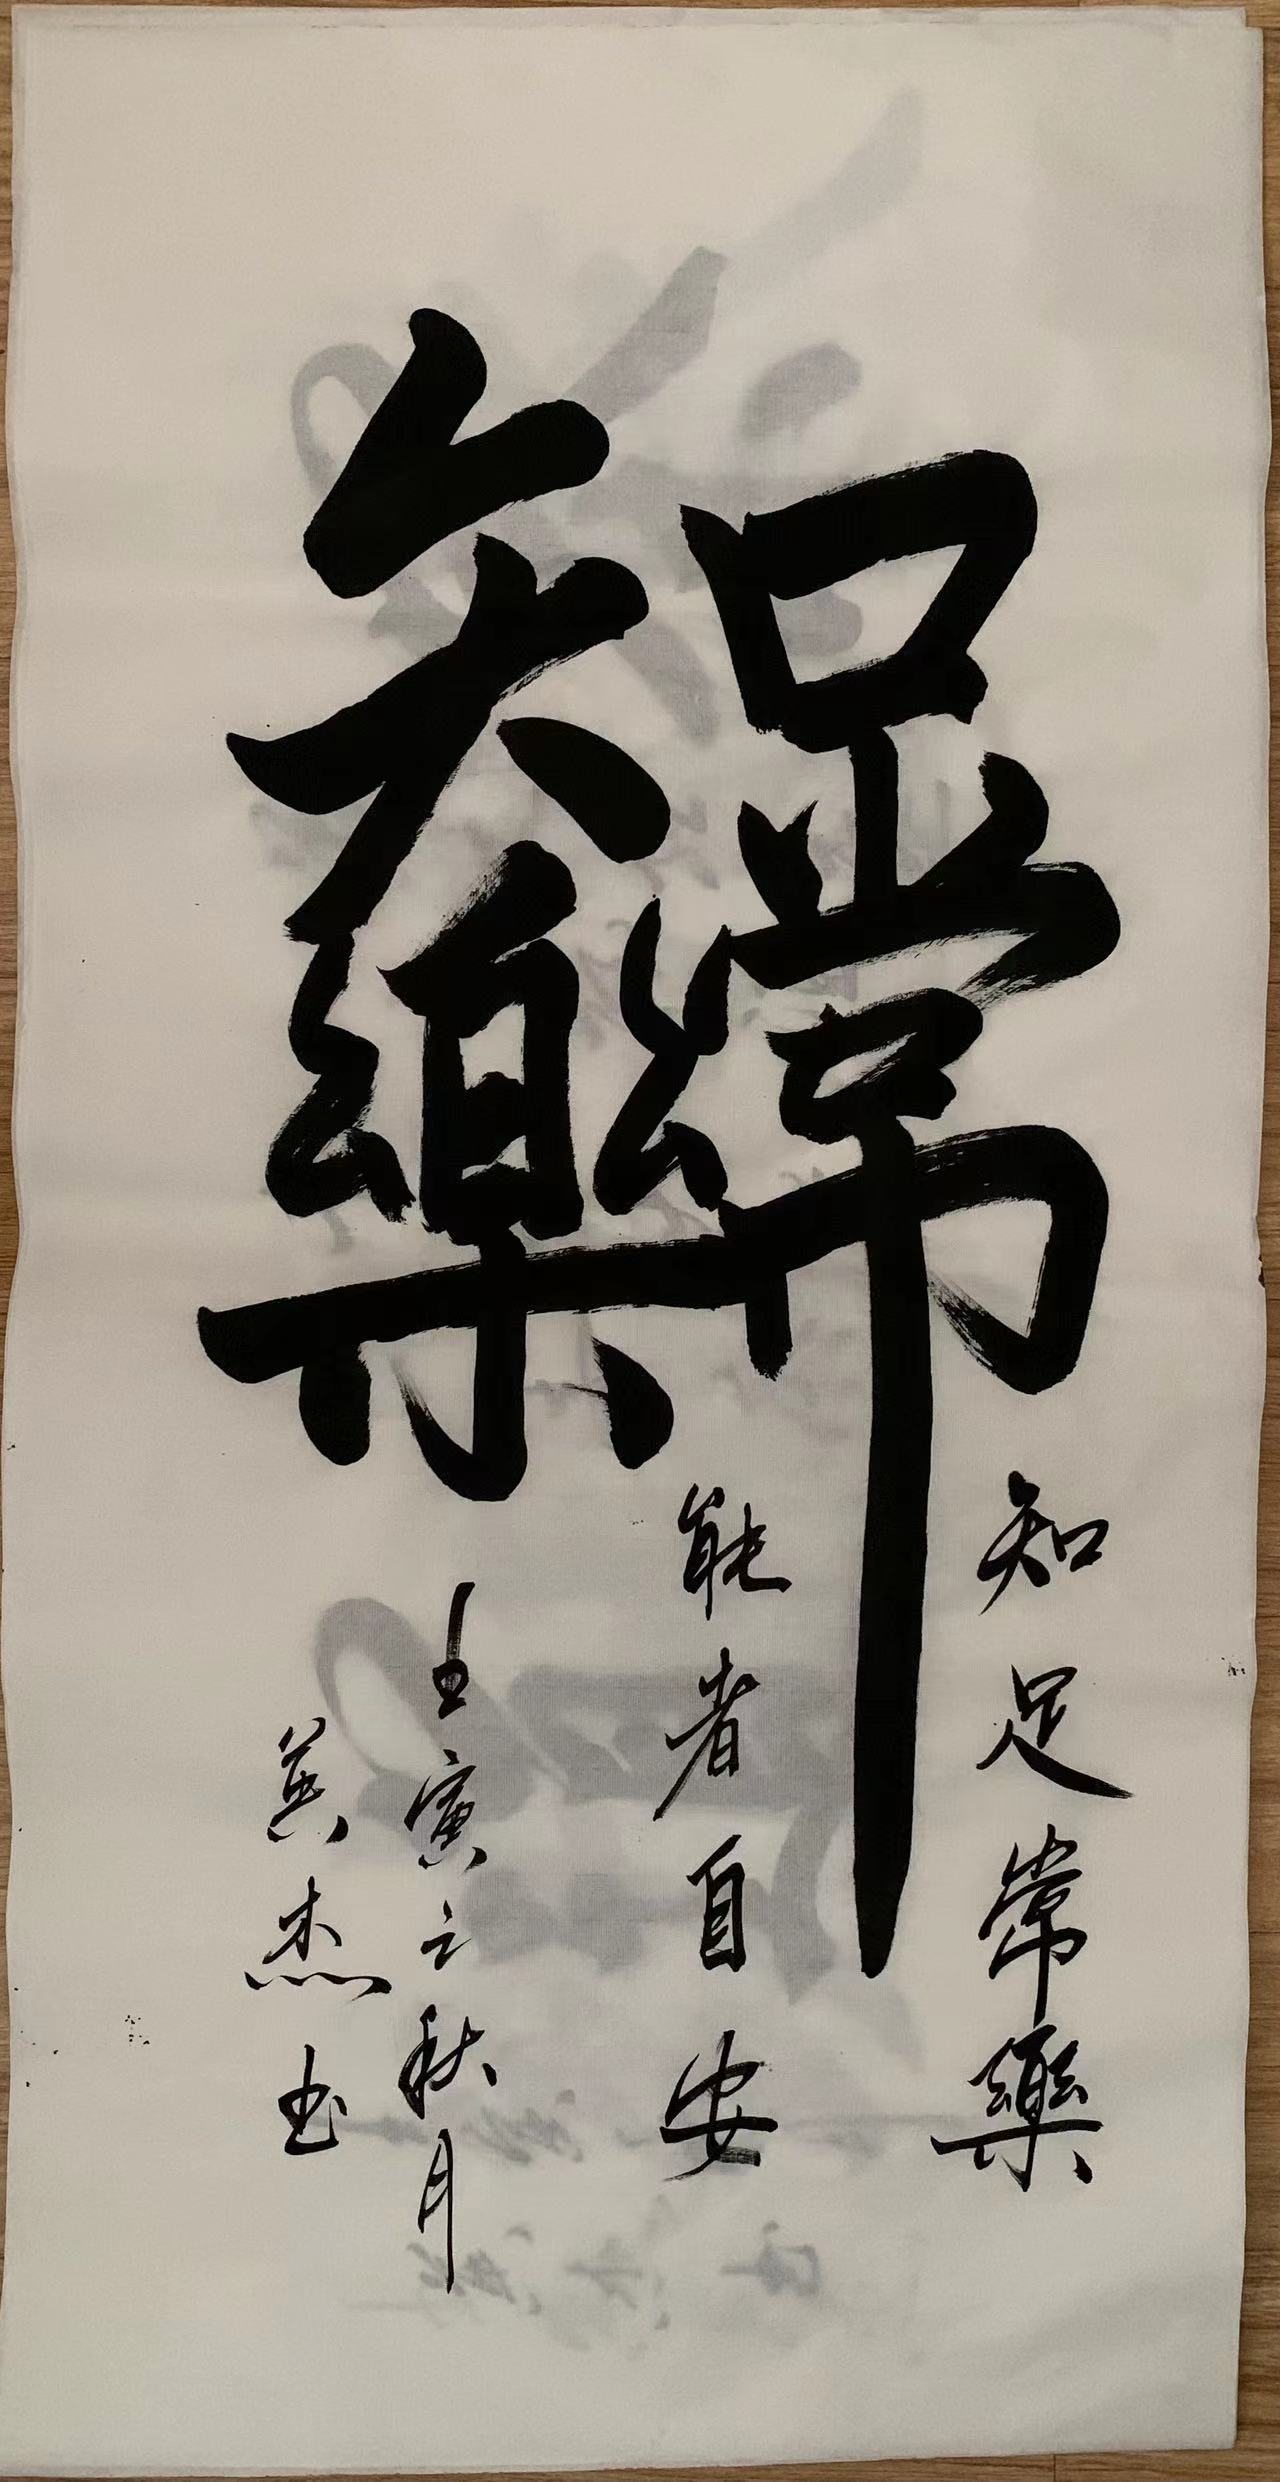 知足常樂
知足常樂
能者自安
壬寅之秋月
英杰书